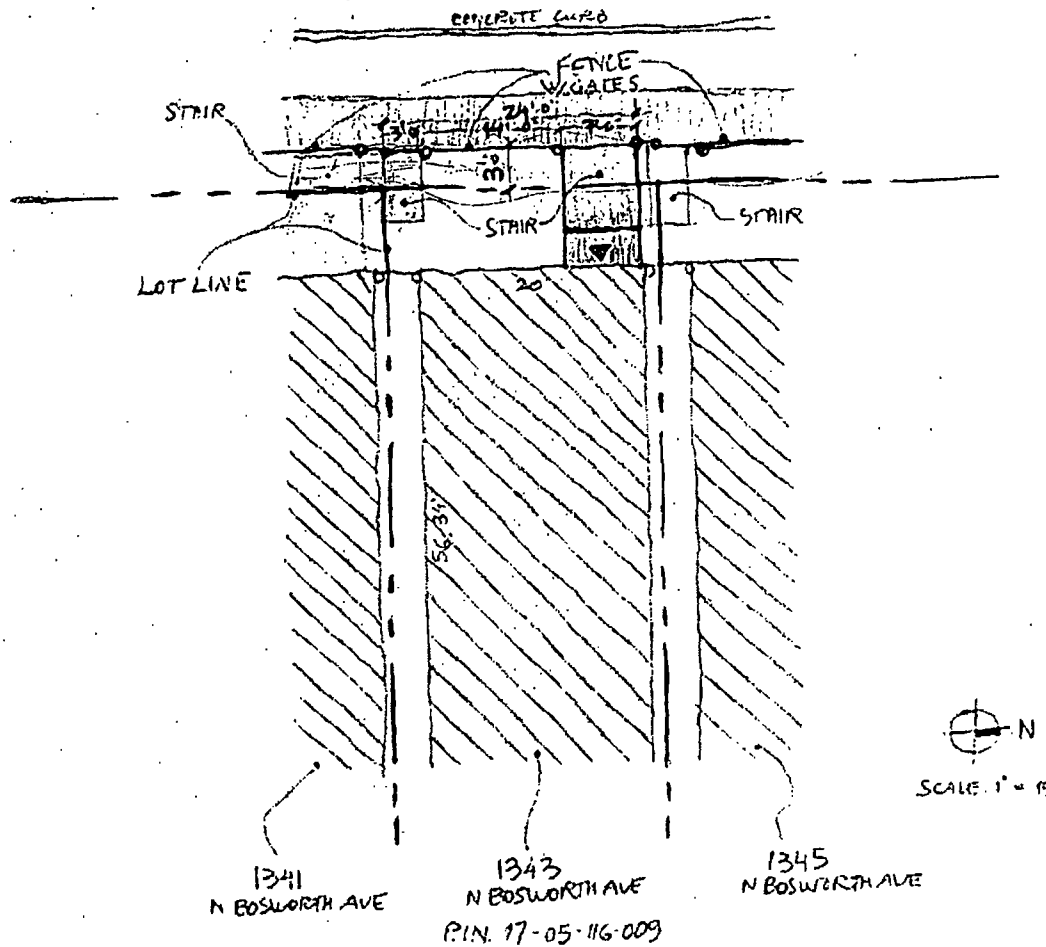 CONCRETE CURB
FENCE
W/GATES
STAIR
24'.0"
3'.0"
3'.0"
STAIR
STAIR
LOT LINE
20
56.34'
N
SCALE. 1" =
1341
N BOSWORTH AVE
1343
N BOSWORTH AVE
1345
N BOSWORTH AVE
P.I.N. 17-05-116-009